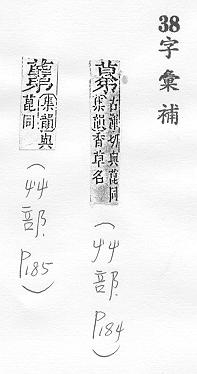 38字彙補
古渾切與菎同
集韻香草名
(艸部 P184)
集韻與
菎同
(艸部 P185)